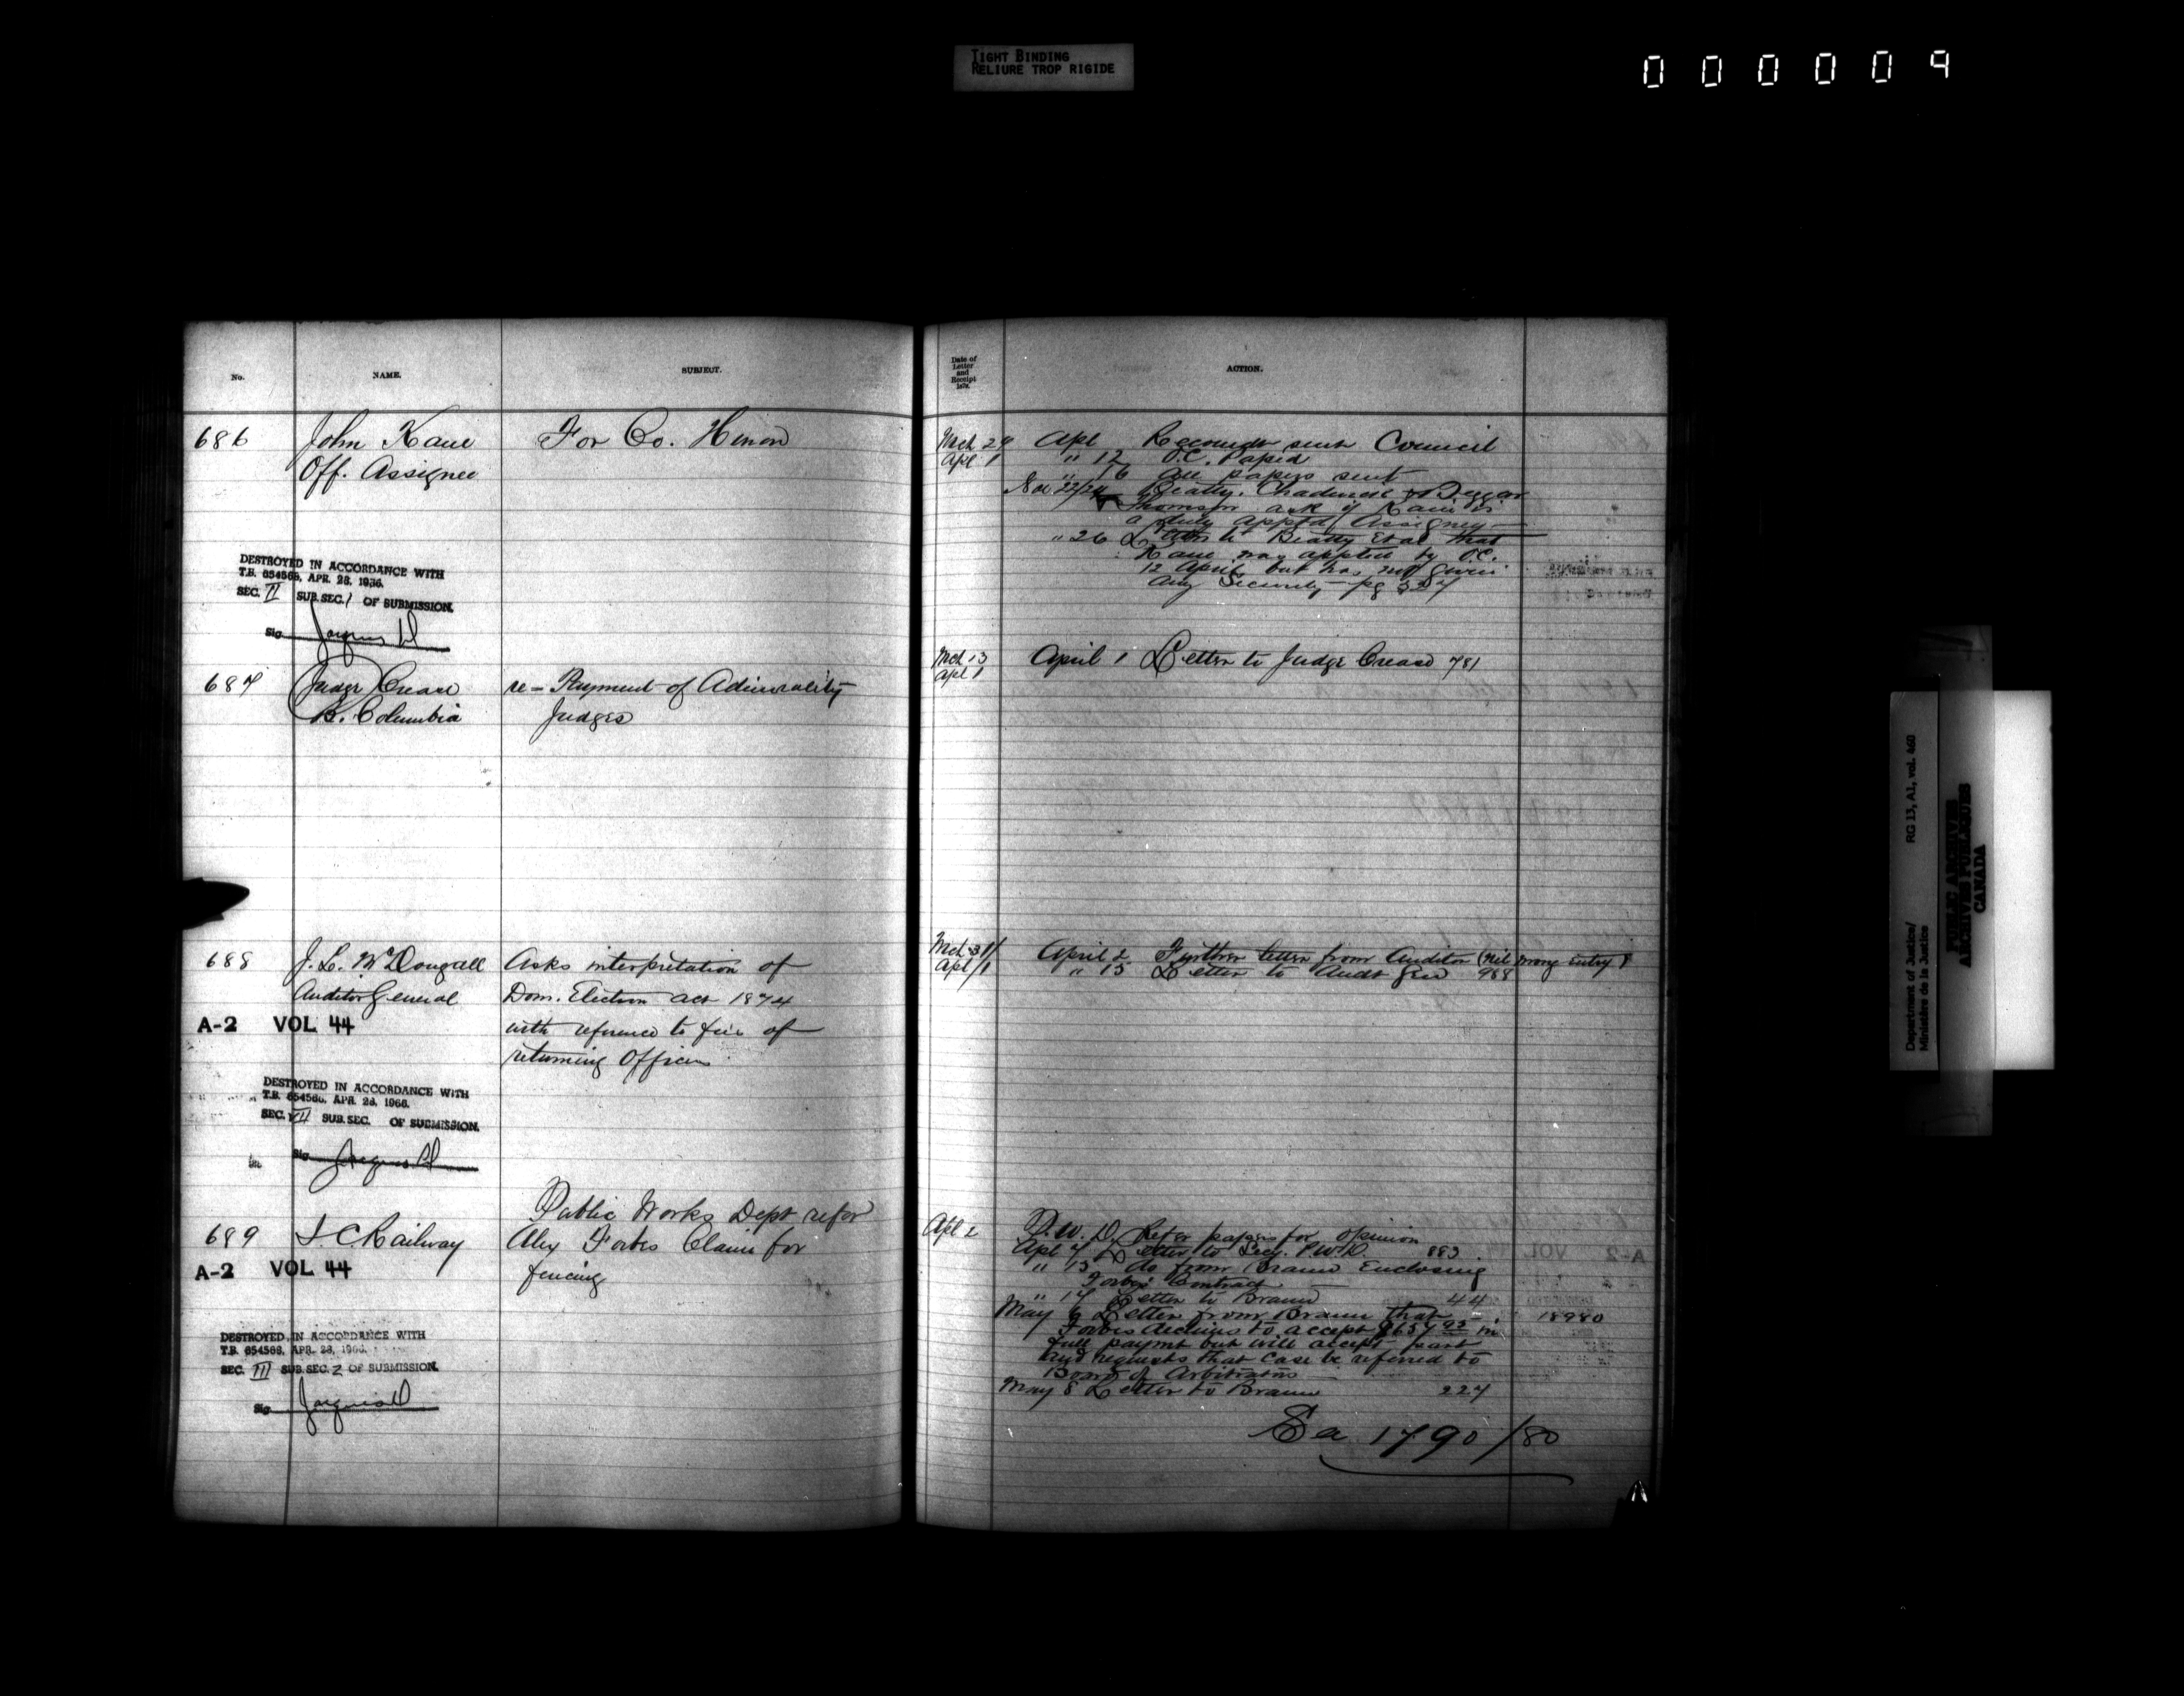 TIGHT BINDING
RELIURE TROP RIGIDE
000009
No. NAME. SUBJECT.
686 John Kane For Co. Huron
Off. Assignee
DESTROYED IN ACCORDANCE WITH
T.B. 654568, APR. 28, 1966.
SEC. II SUB.SEC. 1 OF SUBMISSION.
Sig
687 Judge Crease re-Payment of Admirality
B. Columbia Judges
688 J. L. McDougall Asks interpretation of
Auditor General Dom. Election act 1874
A-2 VOL 44 with reference to fee of
returning Officers
DESTROYED IN ACCORDANCE WITH
T.B. 654568, APR. 28, 1966.
SEC. VII SUB.SEC. OF SUBMISSION.
Sig
Public Works Dept refer
689 I. C. Railway Alex Forbes Claim for
A-2 VOL 44 fencing
DESTROYED IN ACCORDANCE WITH
T.B. 654568, APR. 28, 1966.
SEC. III SUB.SEC. 2 OF SUBMISSION.
Sig
Date of
Letter
and
Receipt
187
ACTION.
Mch 29 Apl Recomdn sent Council
Apl 1 " 12 O.C. Papid
" 16 all papers sent
Nov 22/24 Beatty. Chadwick & Biggar
Thomson ask if Kane is
a duly apptd Assignee
" 26 Letter to Beatty Et al that
Kane was appted by O.C.
12 April but has not given
any Security - pg 327
Mch 13 April 1 Letter to Judge Crease 781
Apl 1
Mch 31/ April 2 Further letter from Auditor (Nil wrong entry)
Apl/1 " 15 Letter to Audr Gen 988
Apl 2 P. W. D. Refer papers for opinion
Apl 7 Letter to Secy. P.W.D. 883
" 15 do from Braun Enclosing
Forbes Contract
" 17 Letter to Braun 44
May 6 Letter from Braun that 18980
Forbes declines to accept $657.92 in
full paymt but will accept part
and requests that case be referred to
Board of Arbitrators
May 8 Letter to Braun 227
1790/80
Department of Justice/
Ministère de la Justice
RG 13, A1, vol. 460
PUBLIC ARCHIVES
ARCHIVES PUBLIQUES
CANADA